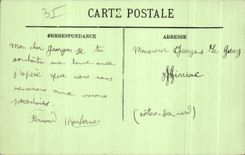 3I
CARTE POSTALE
CORRESPONDANCE
ADRESSE
Mon cher Georges je te
souhaite une bonne année
j'espère que nous nous
reverrons aux vacances
prochaines.
Monsieur Georges Le
Yffiniac
(Côtes-du-Nord)